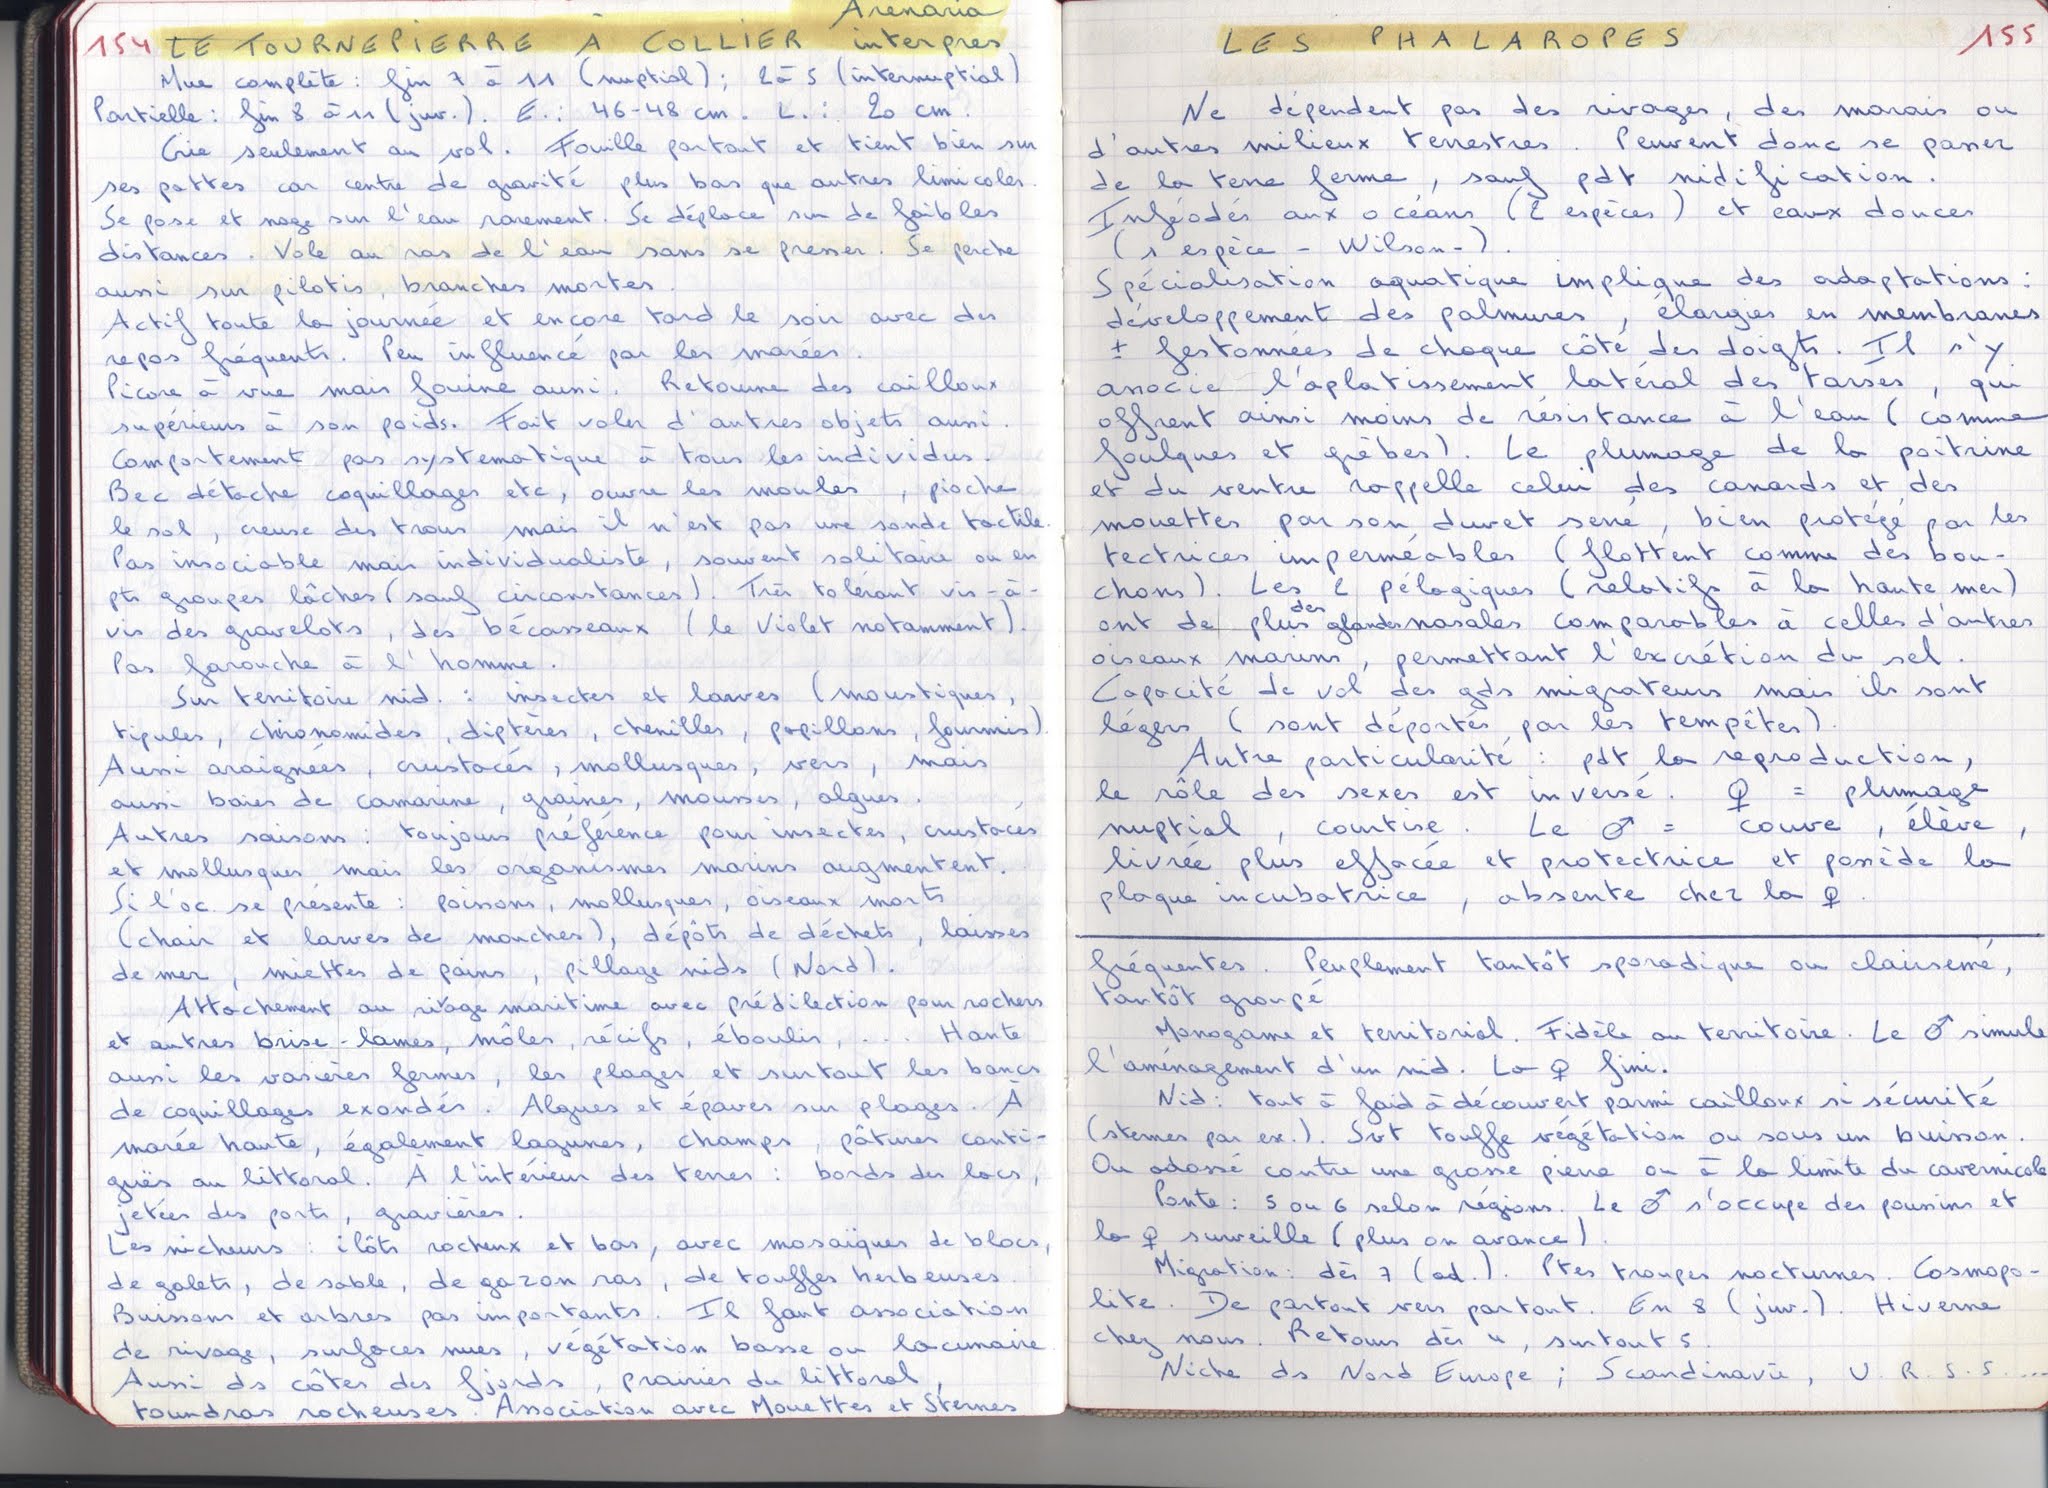 154 LE TOURNEPIERRE À COLLIER Arenaria interpres
Mue complète : fin 7 à 11 (nuptial) ; 2 à 5 (internuptial)
Partielle : fin 8 à 11 (juv.). E. : 46-48 cm. L. : 20 cm.
Crie seulement au vol. Fouille partout et tient bien sur
ses pattes car centre de gravité plus bas que autres limicoles.
Se pose et nage sur l'eau rarement. Se déplace sur de faibles
distances. Vole au ras de l'eau sans se presser. Se perche
aussi sur pilotis, branches mortes.
Actif toute la journée et encore tard le soir avec des
repos fréquents. Peu influencé par les marées.
Picore à vue mais fouine aussi. Retourne des cailloux
supérieurs à son poids. Fait voler d'autres objets aussi.
Comportement pas systématique à tous les individus.
Bec détache coquillages etc, ouvre les moules, pioche
le sol, creuse des trous mais il n'est pas une sonde tactile.
Pas insociable mais individualiste, souvent solitaire ou en
pts groupes lâches (sauf circonstances). Très tolérant vis-à-
vis des gravelots, des bécasseaux (le Violet notamment).
Pas farouche à l'homme.
Sur territoire nid. : insectes et larves (moustiques,
tipules, chironomides, diptères, chenilles, papillons, fourmis)
Aussi araignées, crustacés, mollusques, vers, mais
aussi baies de camarine, graines, mousses, algues.
Autres saisons : toujours préférence pour insectes, crustacés
et mollusques mais les organismes marins augmentent.
Si l'oc. se présente : poissons, mollusques, oiseaux morts
(chair et larves de mouches), dépôts de déchets, laisses
de mer, miettes de pains, pillage nids (Nord).
Attachement au rivage maritime avec prédilection pour rochers
et autres brise-lames, môles, récifs, éboulis, ... Hante
aussi les vasières fermes, les plages et surtout les bancs
de coquillages exondés. Algues et épaves sur plages. À
marée haute, également lagunes, champs, pâtures conti-
guës au littoral. À l'intérieur des terres : bords des lacs,
jetées des ports, gravières.
Les nicheurs : ilôts rocheux et bas, avec mosaïques de blocs,
de galets, de sable, de gazon ras, de touffes herbeuses.
Buissons et arbres pas importants. Il faut association
de rivage, surfaces nues, végétation basse ou lacunaire.
Aussi ds côtes des fjords, prairies du littoral,
toundras rocheuses. Association avec Mouettes et Sternes
LES PHALAROPES 155
Ne dépendent pas des rivages, des marais ou
d'autres milieux terrestres. Peuvent donc se passer
de la terre ferme, sauf pdt nidification.
Inféodés aux océans (2 espèces) et eaux douces
(1 espèce - Wilson -).
Spécialisation aquatique implique des adaptations :
développement des palmures, élargies en membranes
± festonnées de chaque côté des doigts. Il s'y
associe l'aplatissement latéral des tarses, qui
offrent ainsi moins de résistance à l'eau (comme
foulques et grèbes). Le plumage de la poitrine
et du ventre rappelle celui des canards et des
mouettes par son duvet serré, bien protégé par les
tectrices imperméables (flottent comme des bou-
chons). Les 2 pélagiques (relatifs à la haute mer)
ont de plus des glandes nasales comparables à celles d'autres
oiseaux marins, permettant l'excrétion du sel.
Capacité de vol des gds migrateurs mais ils sont
légers (sont déportés par les tempêtes).
Autre particularité : pdt la reproduction,
le rôle des sexes est inversé. ♀ = plumage
nuptial, courtise. Le ♂ = couve, élève,
livrée plus effacée et protectrice et possède la
plaque incubatrice, absente chez la ♀.
fréquentes. Peuplement tantôt sporadique ou clairsemé,
tantôt groupé
Monogame et territorial. Fidèle au territoire. Le ♂ simule
l'aménagement d'un nid. La ♀ fini.
Nid : tout à faid à découvert parmi cailloux si sécurité
(sternes par ex.). Svt touffe végétation ou sous un buisson.
Ou adossé contre une grosse pierre ou à la limite du cavernicole
Ponte : 5 ou 6 selon régions. Le ♂ s'occupe des poussins et
la ♀ surveille (plus on avance).
Migration : dès 7 (ad.). Ptes troupes nocturnes. Cosmopo-
lite. De partout vers partout. En 8 (juv.). Hiverne
chez nous. Retours dès 4, surtout 5.
Niche ds Nord Europe ; Scandinavie, U.R.S.S....